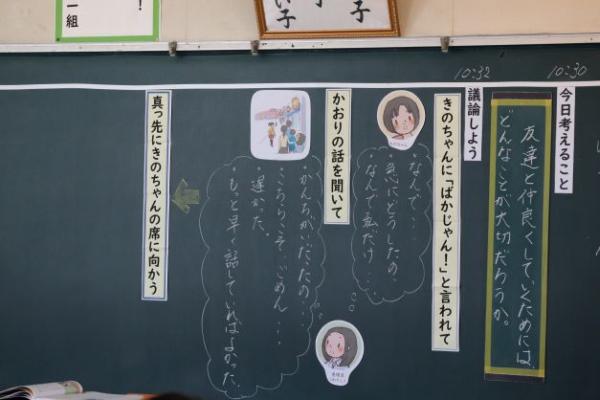 ！
一組
子
い子
10:30
今日考えること
友達と仲良くしていくためには、
どんなことが大切だろうか。
10:32
議論しよう
きのちゃんに「ばかじゃん！」と言われて
・なんで…
・急にどうしたの。
・なんで私だけ…
かおりの話を聞いて
・かんちがいだったの…
・こちらこそ、ごめん…
・遅かった。
・もっと早く話していればよかった。
真っ先にきのちゃんの席に向かう